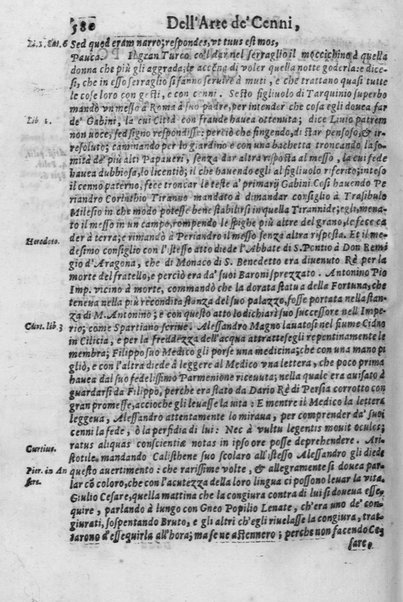 380 Dell'Arte de' Cenni,
Li.1. Sat. 6 Sed quod eram narro; respondes, vt tuus est mos,
Pauca. Il gran Turco col dar nel serraglio il moccichino à quella
donna che più gli aggrada, le accenna di voler quella notte goderla: e dice-
si, che in esso serraglio si fanno seruire à muti, e che trattano quasi tutte
le cose loro con gesti, e con cenni. Sesto figliuolo di Tarquinio superbo
mandò vn messo à Roma à suo padre, per intender che cosa egli doueа far
Lib 1. de' Gabini, la cui Città con fraude hauea ottenuta; dice Liuio patrem
non voce, sed signo respondisse: perciò che fingendo, di star pensoso, & ir-
resoluto; camminando per lo giardino e con vna bachetta troncando la som-
mità de' più alti Papaueri, senza dar altra risposta al messo, la cui fede
hauea dubbiosa, lo licentiò; il che hauendo egli al figliuolo riferito; inteso
il cenno paterno, fece troncar le teste a' primarij Gabini Così hauendo Pe
riandro Corinthio Tiranno mandato à dimandar consiglio à Trasibulo
Milesio in che modo potesse bene stabilirsi in quella Tirannide; egli, mena-
to il messo in vn campo, rompendo le spighe più altre del grano, le fece ca-
Herodoto. der à terra; e rimandò à Periandro il messo senz'altra risposta. Et il me-
desimo consiglio con l'istesso atto diede l'Abbate di S. Pontio à Don Remi
gio d'Aragona, che di Monaco di S. Benedetto era diuenuto Rè per la
morte del fratello, e perciò era da' suoi Baroni sprezzato. Antonino Pio
Imp. vicino à morte, commandò che la dorata statua della Fortuna, che
teneua nella più recondita stanza del suo palazzo, fosse portata nella stan-
za di M. Antonino; e con questo atto lo dichiarò suo successore nell'Impe-
rio; come Spartiano scriue. Alessandro Magno lauatosi nel fiume Cidno
in Cilicia, e per la freddezza dell'acqua attrattesegli repentinamente le
membra; Filippo suo Medico gli porse vna medicina; che con vna mano pi
gliò, e con l'altra diede à leggere al Medico vna lettera, che poco prima
hauea dal suo fedelissimo Parmenione riceuuta; nella quale era auisato à
guardarsi da Filippo, perche era stato da Dario Rè di Persia corrotto con
gran promesse, accioche gli leuasse la vita: E mentre il Medico la lettera
leggeua, Alessandro attentamente lo miraua, per comprender da' suoi
cenni la fede, ò la perfidia di lui: Nec à vultu legentis mouit oculos;
Curtius. ratus aliquas conscientiæ notas in ipsore posse deprehendere. Ari-
stotile, mandando Calisthene suo scolaro all'istesso Alessandro gli diede
Pier. in An questo auertimento: che rarissime volte, & allegramente si douea par-
lar cō coloro, che con l'acutezza della loro lingua ci possono leuar la vita.
Giulio Cesare, quella mattina che la congiura contra di lui si douea esse-
quire, parlando à lungo con Gneo Popilio Lenate, ch'era vno de' con-
giurati, sospettando Bruto, e gli altri ch'egli riuelasse la congiura, trat-
tarono d'essequirla all'hora; ma se n'astennero; perche non facendo Ce
sare